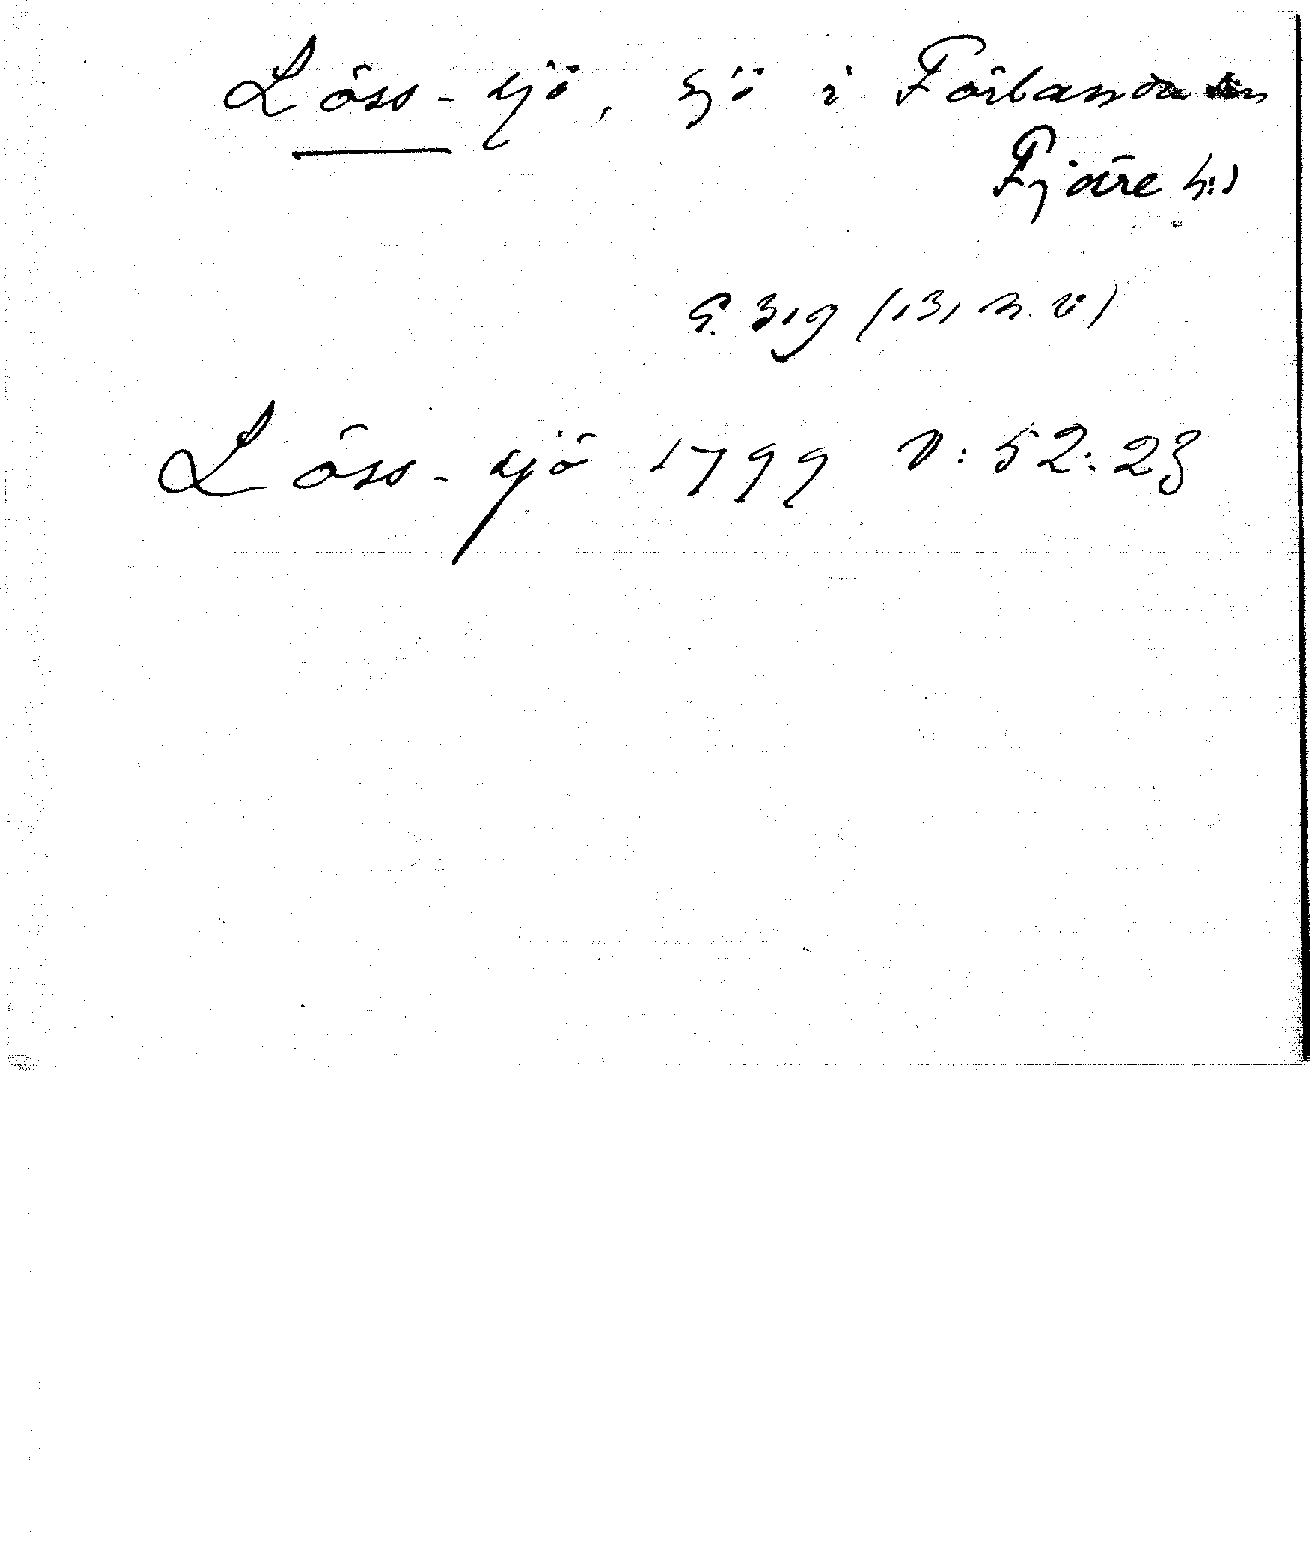 Löss-sjö, sjö i Förlanda sn
Fjäre hd
S. 319 (131 n. v)
Löss-sjö 1799 V: 52: 23